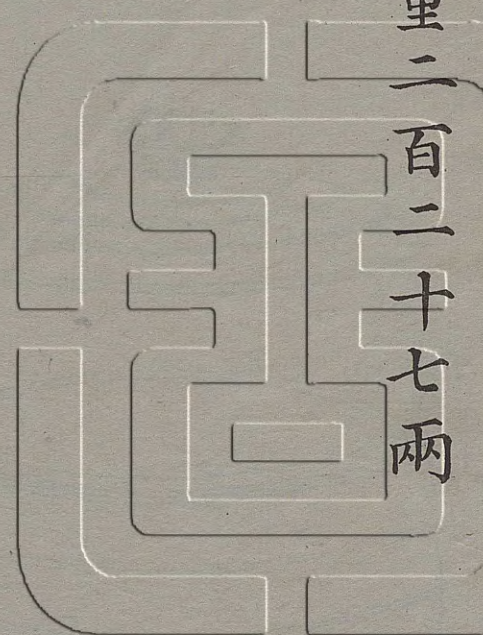 二百二十七兩